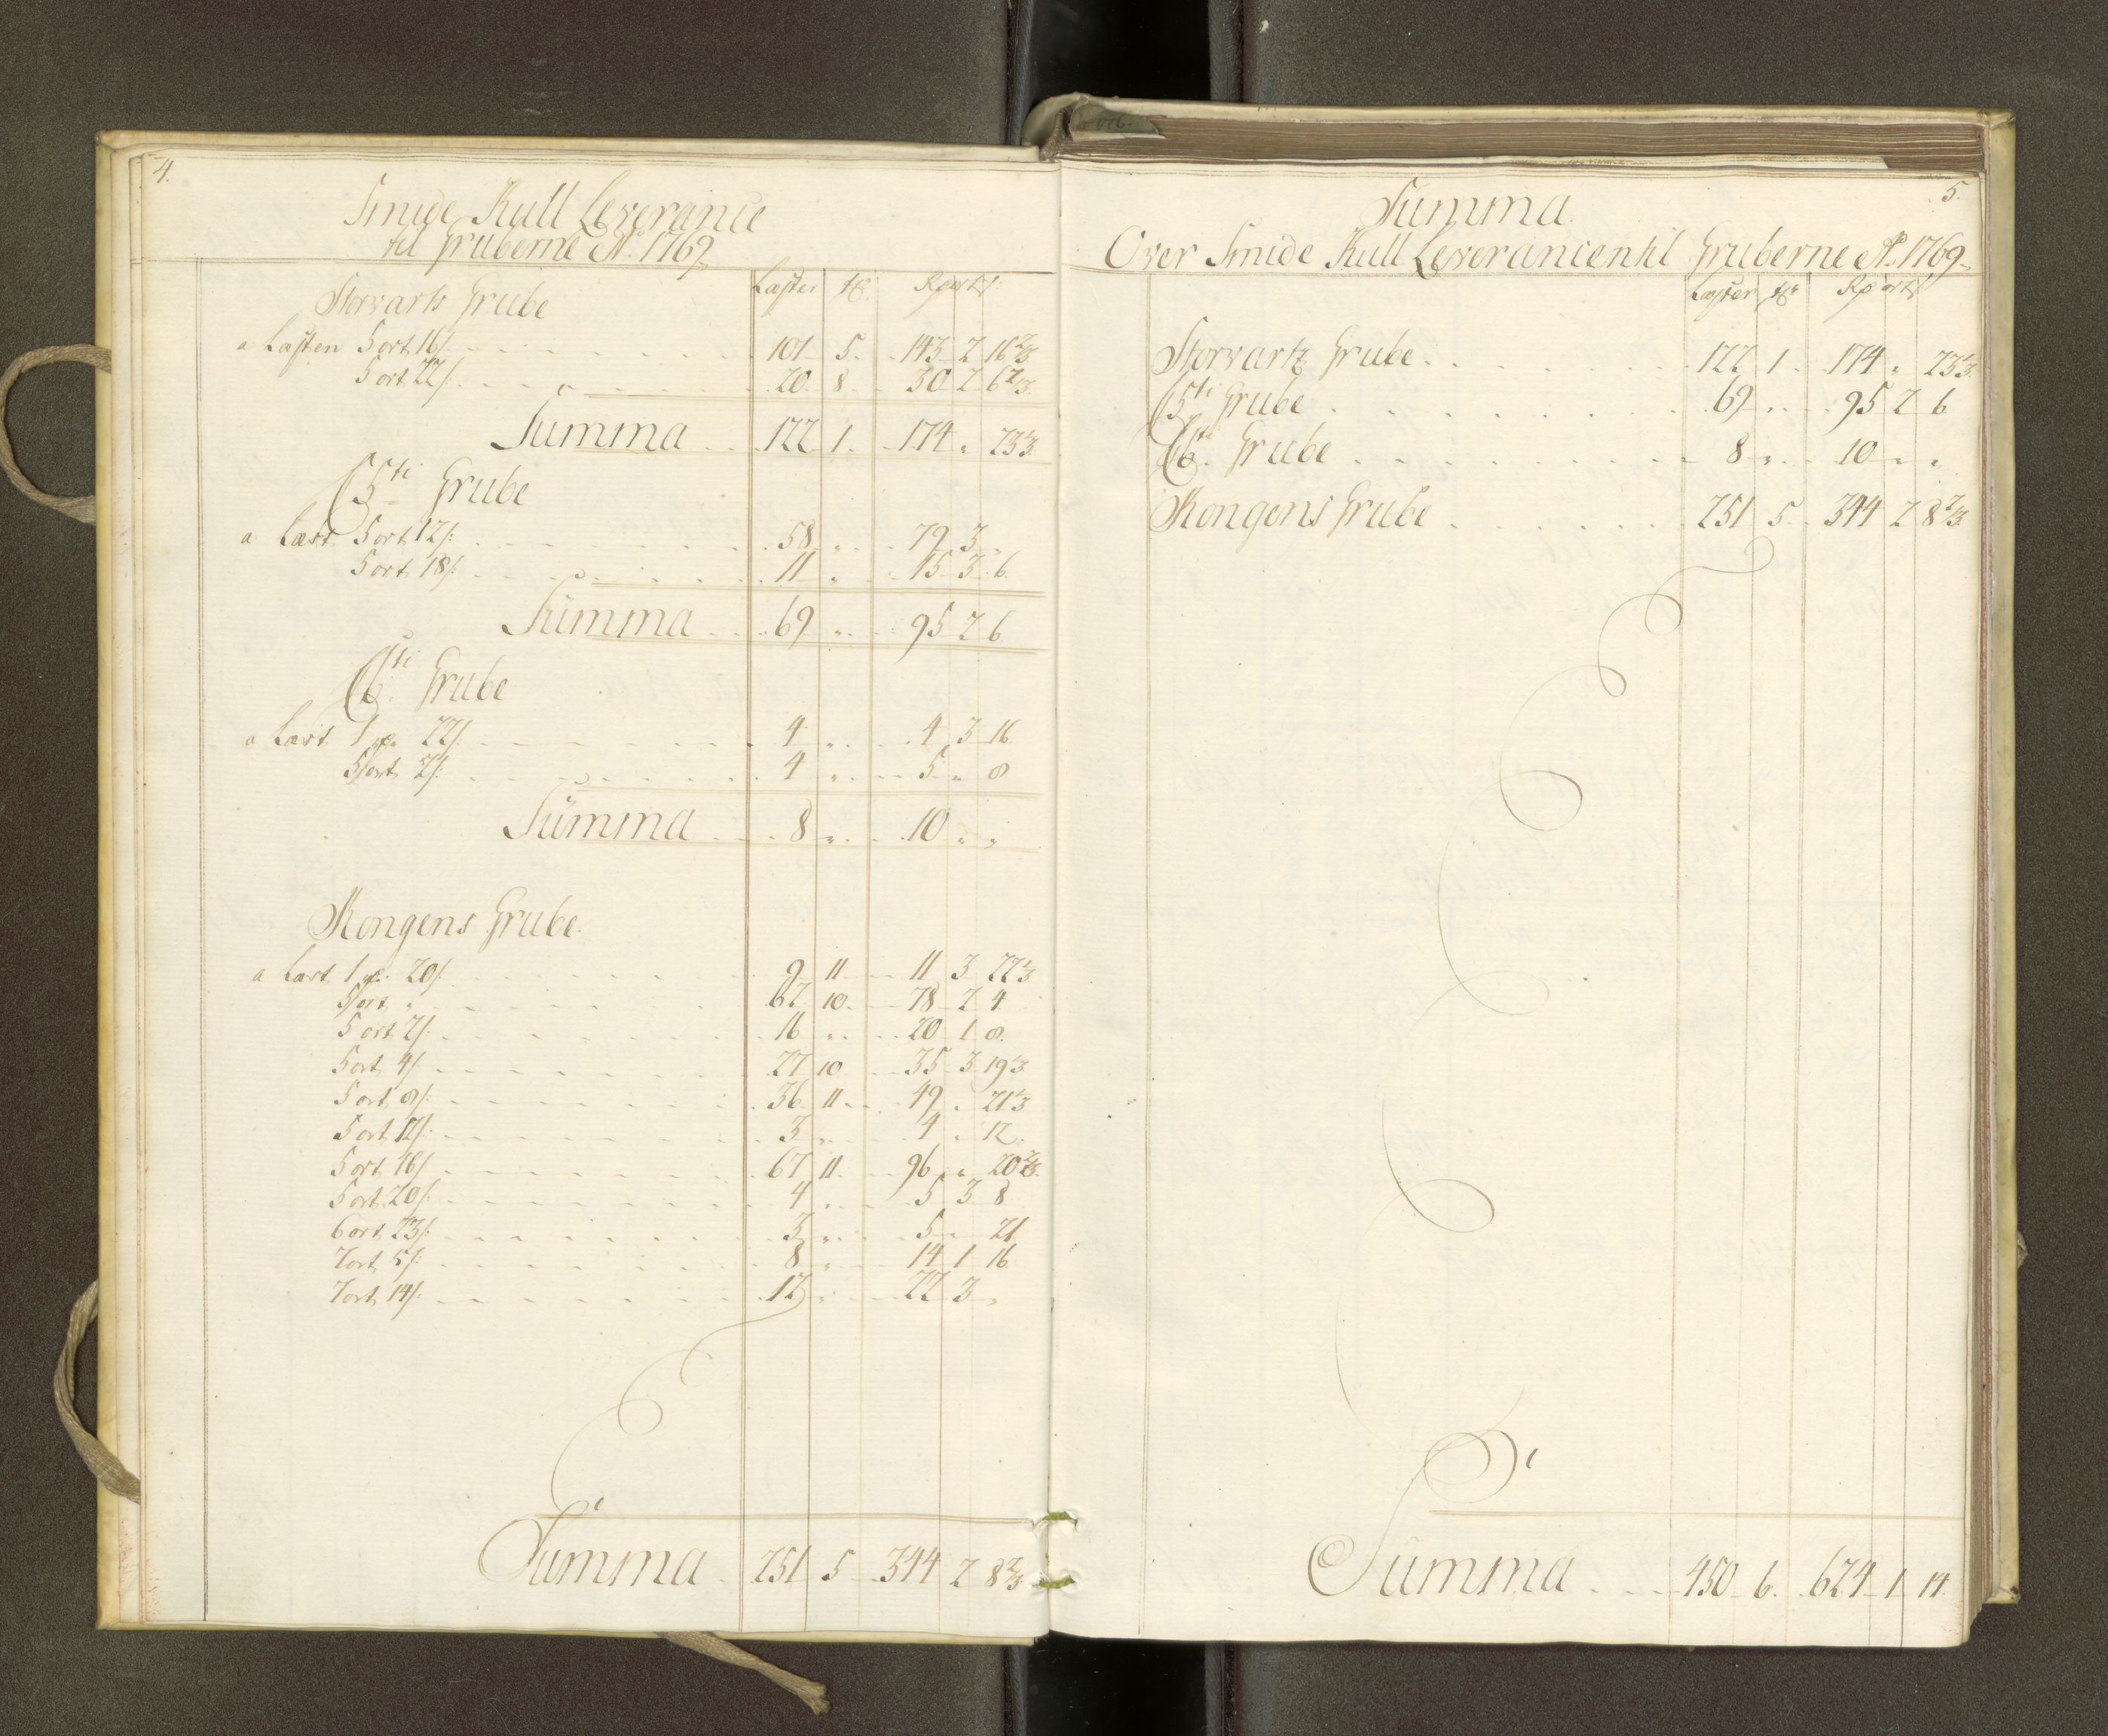 4.
Smide Kull Leverance
til Gruberne Ao. 1769
Læster tr. Rp ort s.
Storvartz Grube
a Læsten 5 ort 16/: 101 5. 143 2 16 2/3
5 ort 22/: 20. 8 30 2 6 2/3
Summa 122 1. 174 „ 23 1/3
5ti Grube
a Læst 5 ort 12/: 58 „ 79 3 „
5 ort 18/: 11 „ 15 3 6.
Summa 69 „ 95 2 6
6ti Grube
a Læst 1 rp. 22/: 4 „ 4 3 16
5 ort 2/: 4 „ 5 „ 8
Summa 8 „ 10 „ „
Kongens Grube.
a Læst 1 rp. 20/: 9 11 11 3 22 1/3
5 ort „ 62 10 78 2 4
5 ort 2/: 16 „ 20 1 8.
5 ort 4/: 27 10 35 3 19 1/3
5 ort 8/: 36 11 49 „ 21 1/3
5 ort 12/: 3 „ 4 „ 12
5 ort 16/: 67 11 96 „ 20 2/3
5 ort 20/: 4 „ 5 3 8
6 ort 23/: 3 „ 5 „ 21
7 ort 5/: 8 „ 14 1 16
7 ort 14/: 12 „ 22 3 „
Summa 251 5 344 2 8 2/3
5.
Summa
Over Smide Kull Leverancen til Gruberne Ao. 1769
Læster tr. Rp ort s.
Storvartz Grube 122 1. 174 „ 23 1/3
5ti Grube 69 „ 95 2 6
6ti Grube 8 „ 10 „ „
Kongens Grube 251 5. 344 2 8 2/3
Summa 450 6. 624 1 14